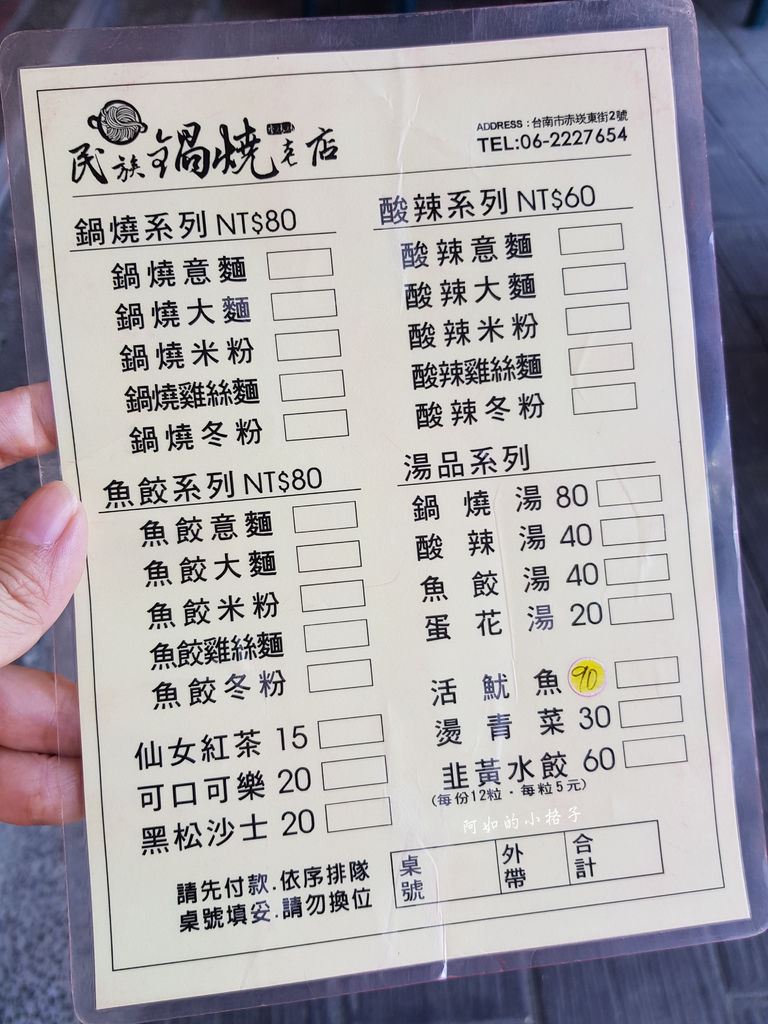 民族鍋燒老店
ADDRESS：台南市赤崁東街2號
TEL:06-2227654
鍋燒系列 NT$80
鍋燒意麵
鍋燒大麵
鍋燒米粉
鍋燒雞絲麵
鍋燒冬粉
魚餃系列 NT$80
魚餃意麵
魚餃大麵
魚餃米粉
魚餃雞絲麵
魚餃冬粉
仙女紅茶 15
可口可樂 20
黑松沙士 20
酸辣系列 NT$60
酸辣意麵
酸辣大麵
酸辣米粉
酸辣雞絲麵
酸辣冬粉
湯品系列
鍋燒湯 80
酸辣湯 40
魚餃湯 40
蛋花湯 20
活魷魚 90
燙青菜 30
韭黃水餃 60
(每份12粒．每粒5元)
阿如的小格子
請先付款.依序排隊
桌號填妥.請勿換位
桌號 外帶 合計